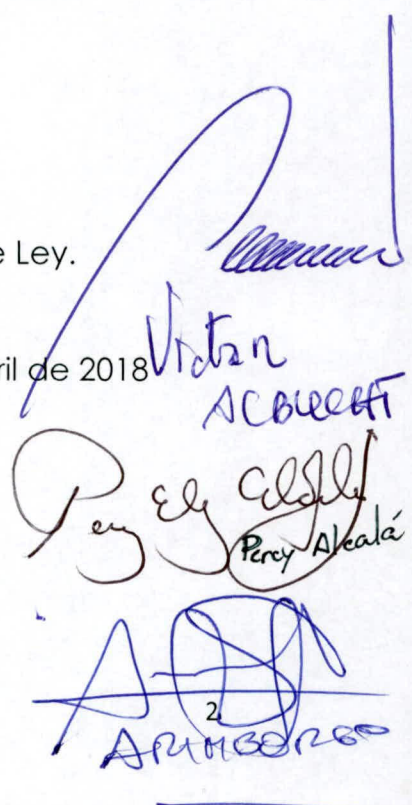 e Ley.
ril de 2018
Victor
ALBRECHT
Percy Alcalá
2
ARIMBORGO